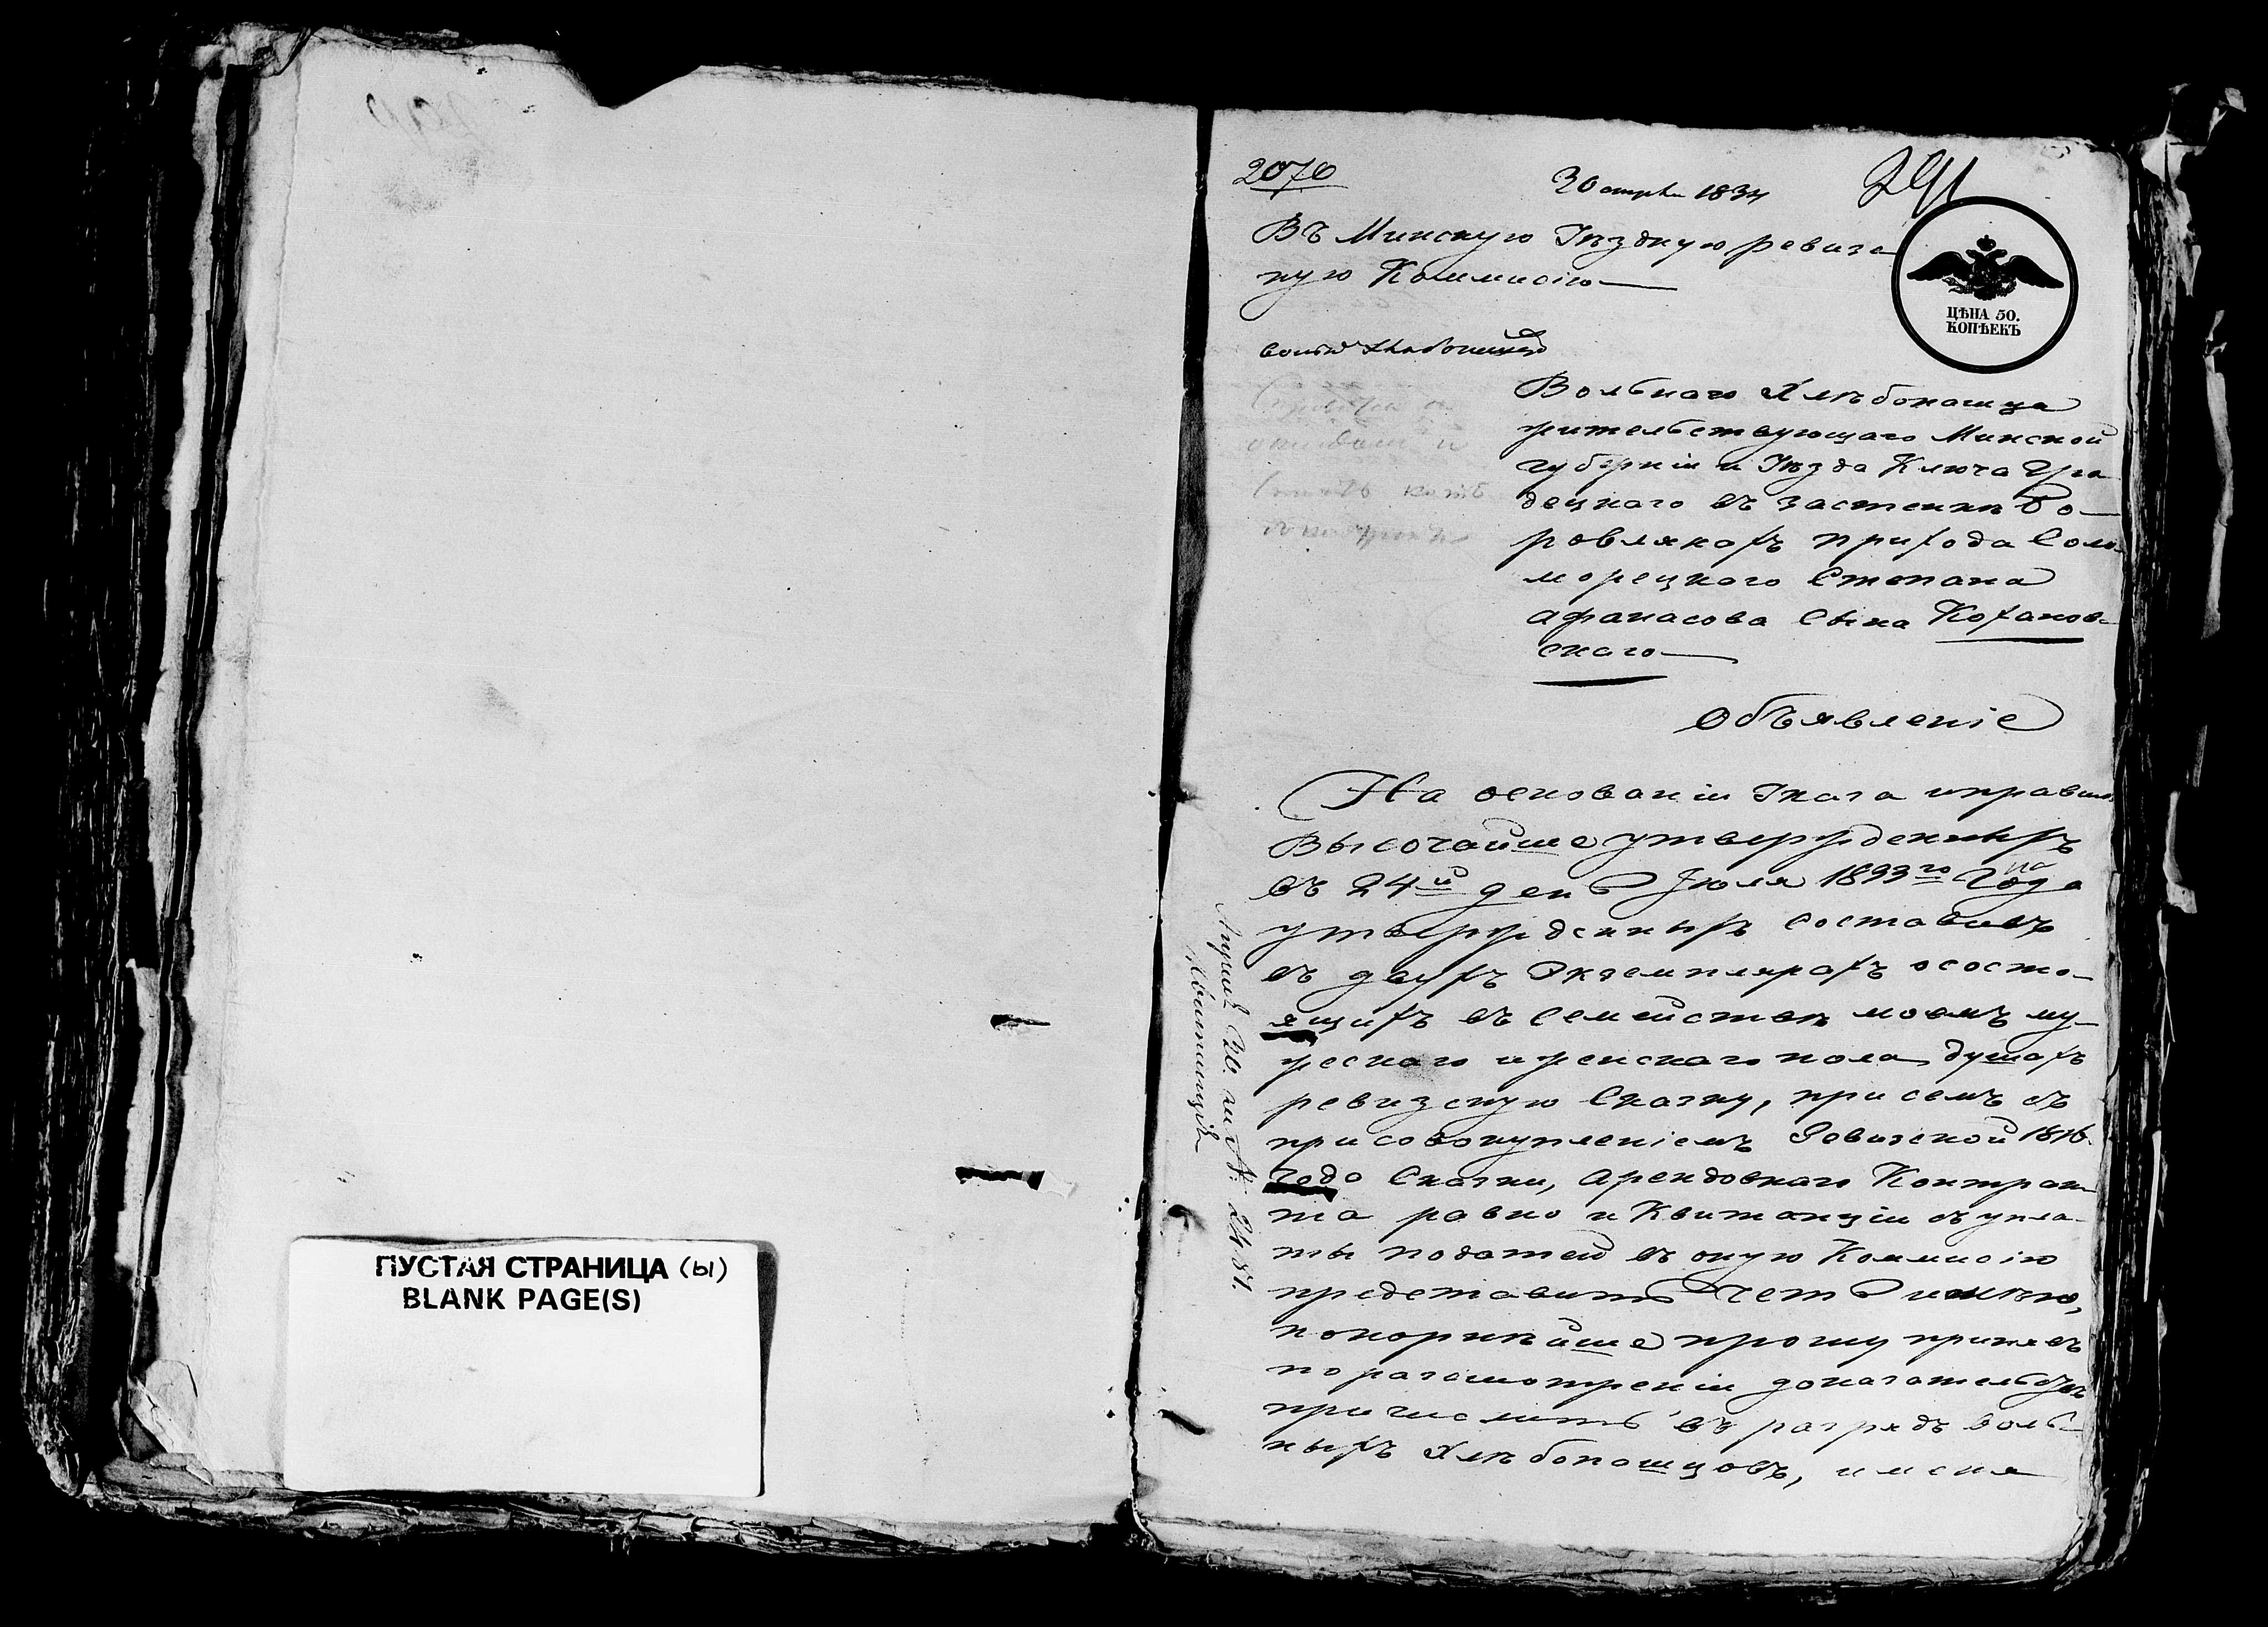 ПУСТАЯ СТРАНИЦА (ы)
BLANK PAGE(S)
2070
30 апреля 1834
291
Въ Минскую Уѣздную ревиз
ную Коммисію
ЦѢНА 50.
КОПѢЕКЪ
Вольнаго Хлѣбопашца
жительствующаго Минской
губерніи и Уѣзда Ключа Гро
децкаго въ застенкѣ Бо-
ровлянахъ прихода Соло-
морецкого Степана
Афанасова Сына Кохонов-
скаго
Объявленіе
На основаніи Указа иправил
Высочайше утвержденныхъ
въ 24й день Іюля 1833го Года
утвержденныхъ составивъ
въ двухъ Экземплярахъ ососто-
ящихъ въ Семействѣ моемъ му-
жескаго иженскаго пола душахъ
ревизскую Сказку, присемъ съ
присовокупленіемъ Ревизской 1816
года Сказки, Арендовнаго Контрак
та равно и Квитанціи въ упла-
ты податей въ оную Коммисію
представить Честь имѣю,
покорнѣйше прошу принявъ
поразсмотреніи доказательствъ
причислить въ разрядъ воль-
ныхъ Хлѣбопашцовъ, именя